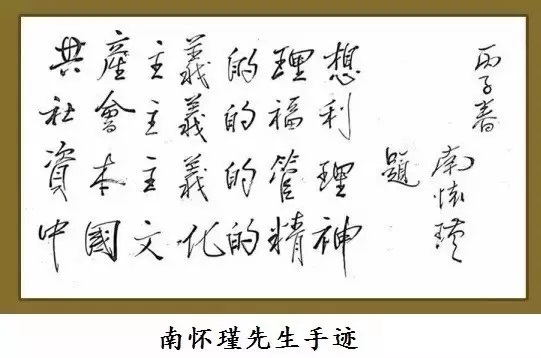 共產主義的理想
社會主義的福利
資本主義的管理
中國文化的精神
丙子春
南懷瑾
題
南怀瑾先生手迹